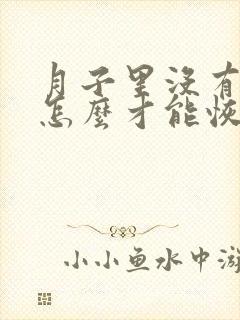 月子里没有
怎麼才能恢
小小鱼水中游